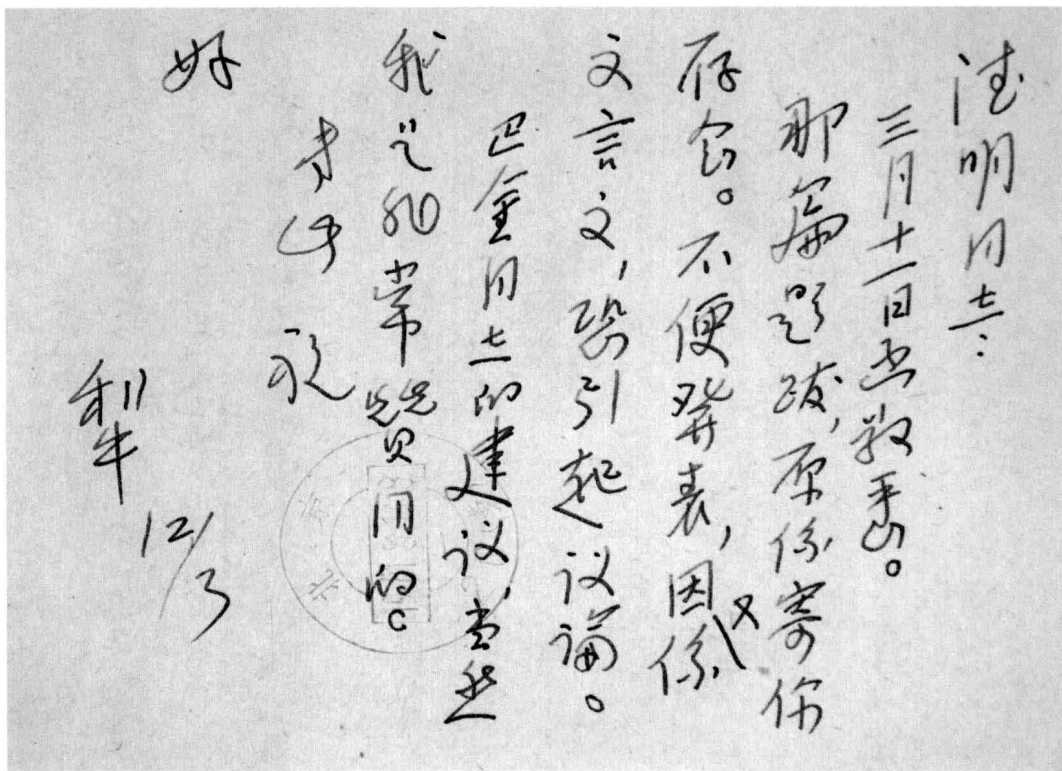 德明同志：
三月十一日函敬悉。
那篇题跋，原係寄你
存念。不便發表，因又係
文言文，恐引起议論。
巴金同志的建议，当然
我是非常赞同的。
专此 祝
好
犁
12/3